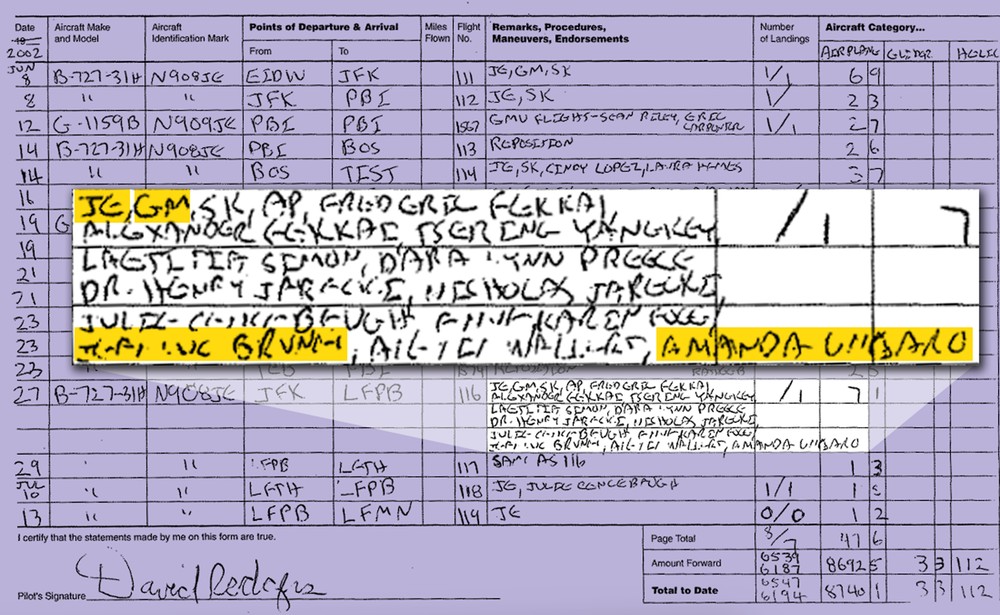 Date Aircraft Make and Model Aircraft Identification Mark Points of Departure & Arrival Miles Flown Flight No. Remarks, Procedures, Maneuvers, Endorsements Number of Landings Aircraft Category...
2002 From To AIRPLANE GLIDER HELIC
JUN
8 B-727-31H N908JE EIDW JFK 111 JE, GM, SK 1/1 6 9
8 " " JFK PBI 112 JE, SK 1/ 2 3
12 G-1159B N909JE PBI PBI 1567 GMU FLIGHT-SEAN RILEY, ERIC CARPENTER 1/1 2 7
14 B-727-31H N908JE PBI BOS 113 REPOSITION 2 6
14 " " BOS TEST 114 JE, SK, CINDY LOPEZ, LAURA 3 7
16
19 G
19
21
21
23
23
23
JE, GM, SK, AP, FREDERIC FEKKAI,
ALEXANDER FEKKAI, TSERING YANGKEY / 1 7
LAETITIA SIMON, DARA LYNN PREECE
DR. HENRY JARECKI, NICHOLAS JARECKI,
JULIE
BRUNEL, AMANDA
27 B-727-31H N908JE JFK LFPB 116 JE, GM, SK, AP, FREDERIC FEKKAI, / 1 7 1
ALEXANDER FEKKAI, TSERING YANGKEY
LAETITIA SIMON, DARA LYNN PREECE
DR. HENRY JARECKI, NICHOLAS JARECKI,
JULIE
BRUNEL, AMANDA
29 " " LFPB LFTH 117 SAME AS 116 1 3
JUL
10 " " LFTH LFPB 118 JE, JULIE 1/1 1
13 " " LFPB LFMN 119 JE 0/0 1 2
I certify that the statements made by me on this form are true. Page Total 8/7 47 6
Amount Forward 6539 6187 8692 5 3 3 112
Pilot's Signature David Rodgers Total to Date 6547 6194 8740 1 3 3 112